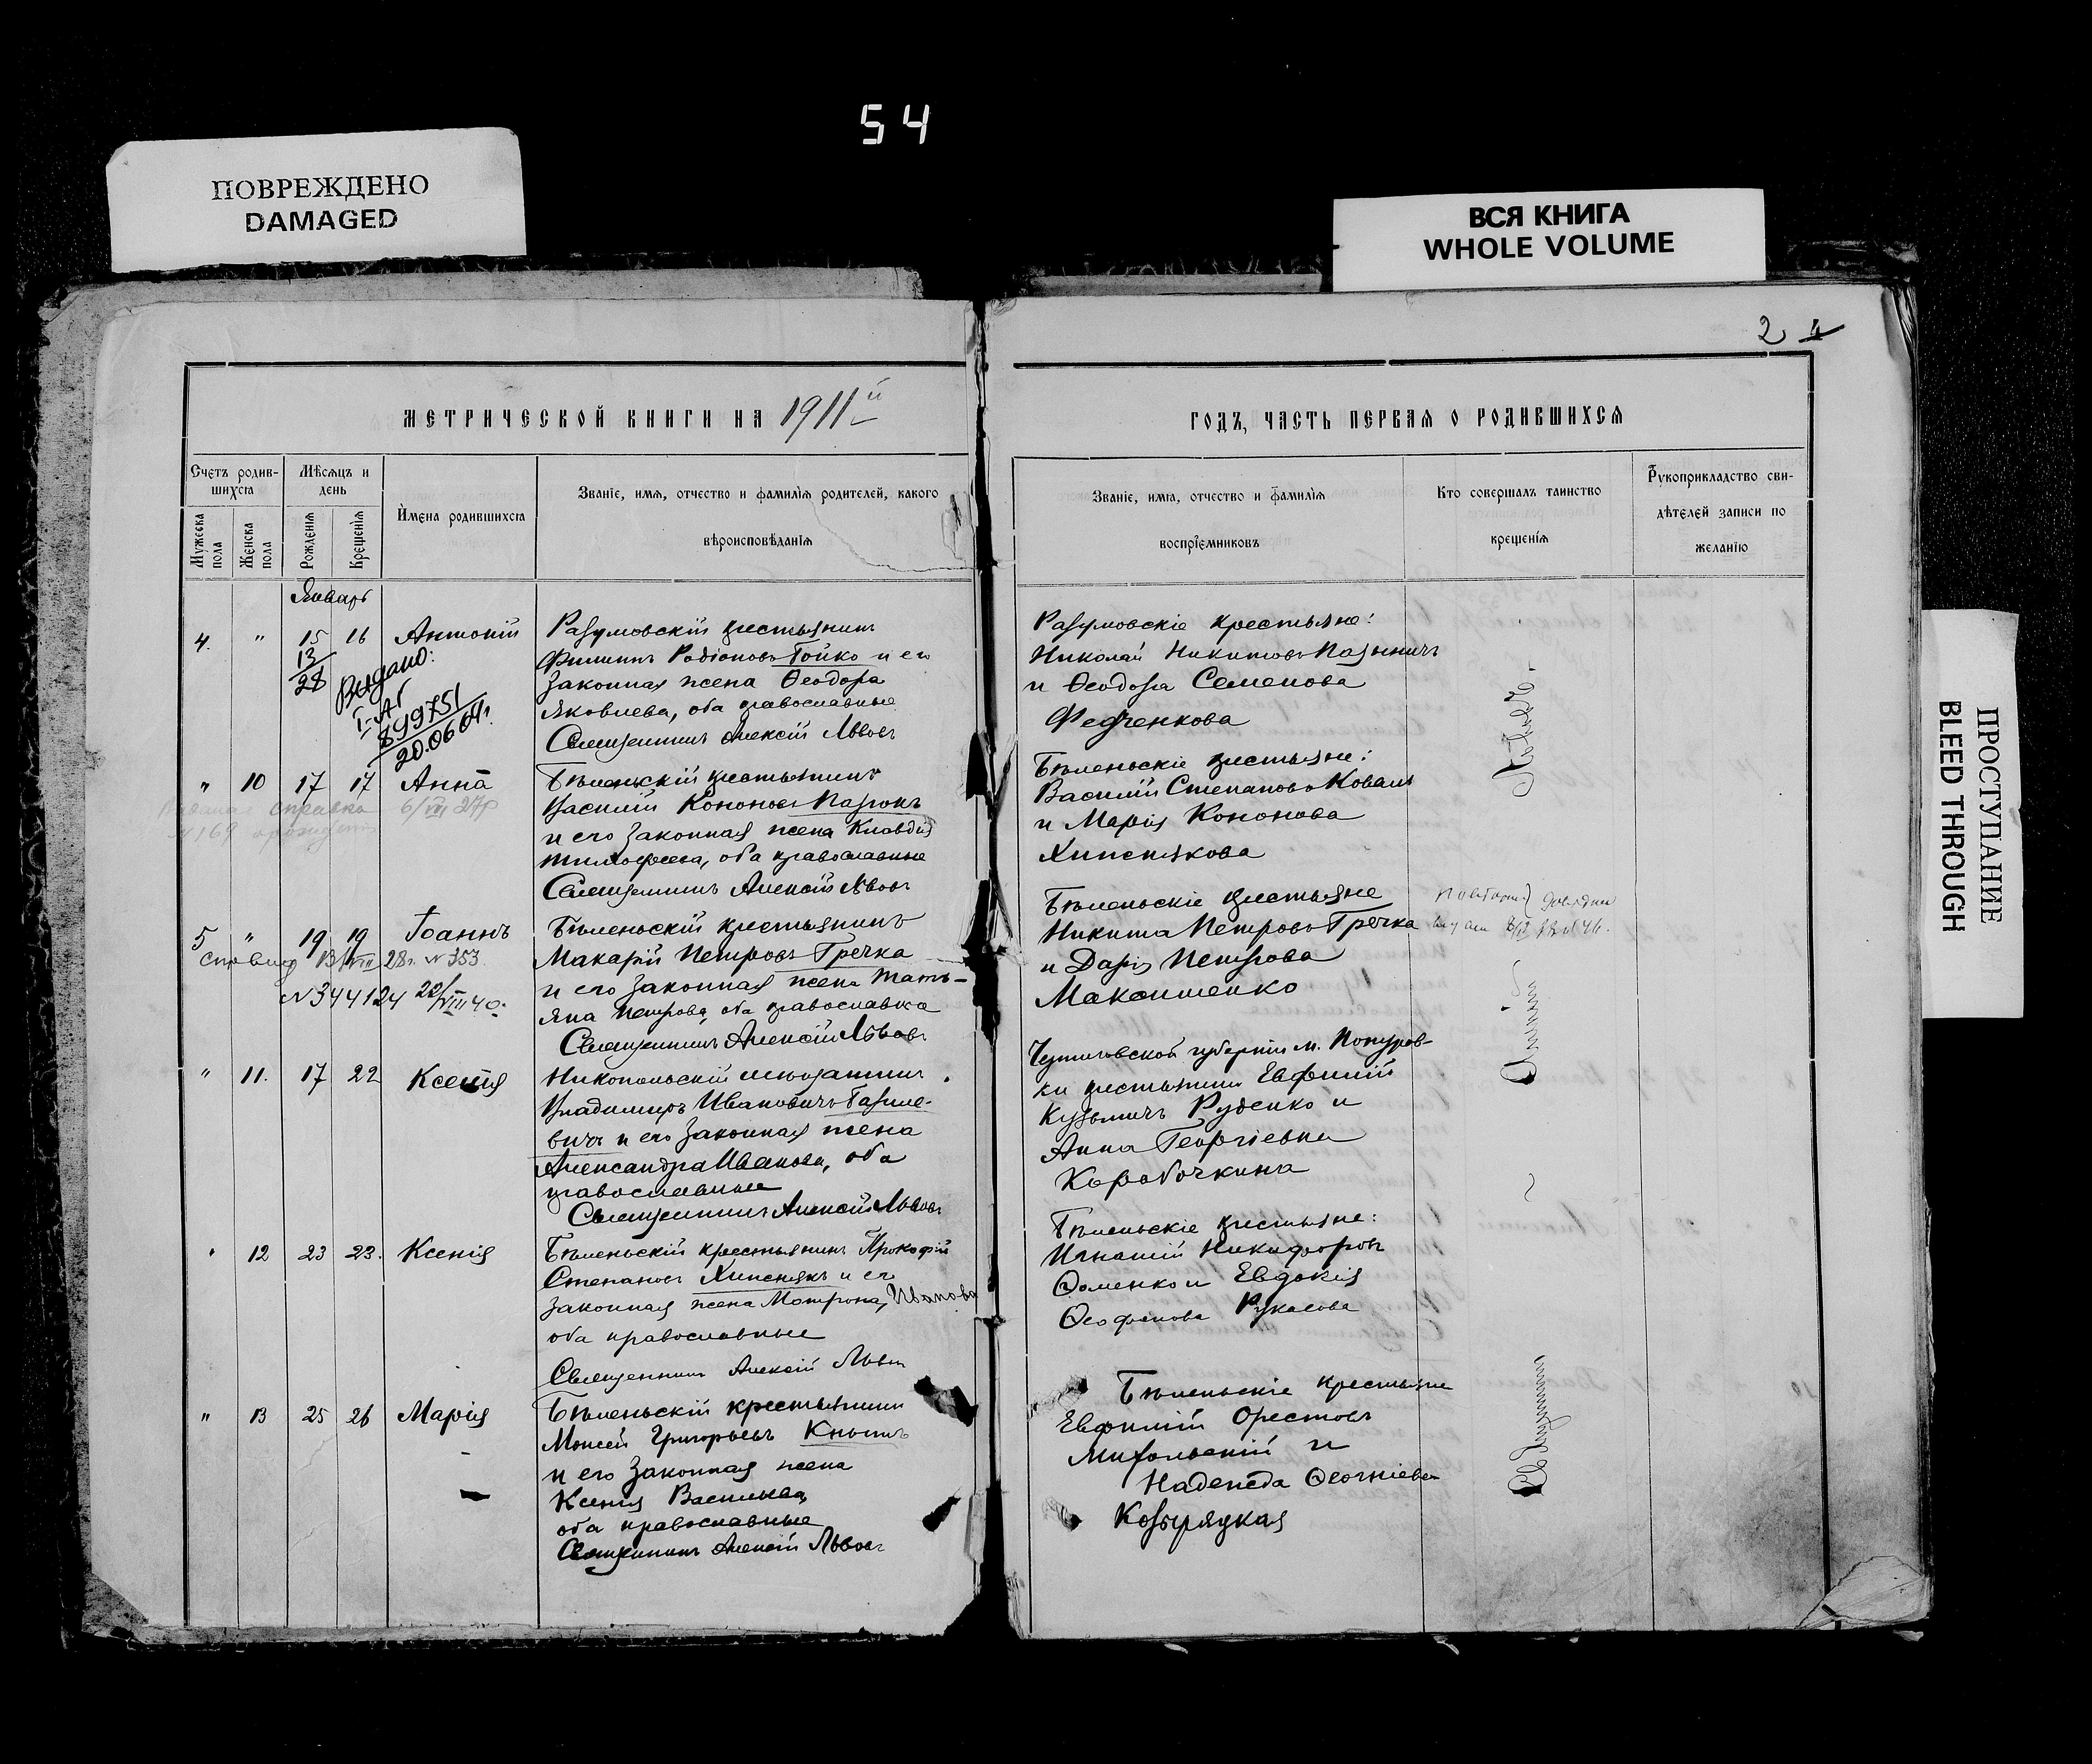 54
ПОВРЕЖДЕНО
DAMAGED
ВСЯ КНИГА
WHOLE VOLUME
2 4
МЕТРИЧЕСКОЙ КНИГИ НА 1911й
Счетъ родив-
шихся
Мужеска
пола
Женска
пола
Мѣсяцъ и
день
Рожденія
Крещенія
Имена родившихся
Званіе, имя, отчество и фамилія родителей, какого
вѣроисповѣданія
Январь
4. " 15 16 Антоній
13
28
Видано:
I-АГ
899751
20.06.61.
Разумовскій крестьянинъ
Филиппъ Родіоновъ Гойко и его
законная жена Ѳеодора
Яковлева, оба православные
Священникъ Алексій Львовъ
" 10 17 17 Анна
справка 6/VIII 27р
№169
Бѣленьскій крестьянинъ
Василій Кононовъ
и его законная жена Клавдія
Тимофеева, оба православные
Священникъ Алексій Львовъ
5 " 19 19 Іоаннъ
13/VIII 28г. №353
№344124 20/VIII 40
Бѣленьскій крестьянинъ
Макарій Петровъ Гречка
и его законная жена Тать-
яна Петрова, оба православна
Священникъ Алексій Львовъ
" 11. 17 22 Ксенія
Никопольскій мѣщанинъ
Владимиръ Ивановичъ
вичъ и его законная жена
Александра Иванова, оба
православные
Священникъ Алексій Львовъ
" 12 23 23. Ксенія
Бѣленьскій крестьянинъ Прокофій
Степановъ Хипснякъ и его
законная жена Мотрона, Иванова
оба православные
Священникъ Алексій Львовъ
" 13 25 26 Марія
Бѣленьскій крестьянинъ
Моисей Григорьевъ
и его законная жена
Ксенія Васильева,
оба православные
Священникъ Алексій Львовъ
ГОДЪ, ЧАСТЬ ПЕРВАЯ О РОДИВШИХСЯ
Званіе, имя, отчество и фамилія
воспріемниковъ
Кто совершалъ таинство
крещенія
Рукоприкладство сви-
дѣтелей записи по
желанію
Разумовскіе крестьяне:
Николай Никитовъ
и Ѳеодора Семенова
Федченкова
Бѣленьскіе крестьяне:
Василій Степановъ Коваль
и Марія Кононова
Хипснякова
Бѣленьскіе крестьяне
Никита Петровъ Гречка
и Дарія Петрова
Максименко
Черниговской губерніи м.
ки крестьянинъ Евфимій
Кузьмичъ Руденко и
Анна Георгіевна
Коробочкина
Бѣленьскіе крестьяне:
Игнатій Никифоровъ
Ѳоменко и Евдокія
Ѳеофанова Рукасова
Бѣленьскіе крестьяне
Евфимій Орестовъ
и
Надежда
Козыряцкая
Священникъ
Алексій
Львовъ
ПРОСТУПАНИЕ
BLEED THROUGH